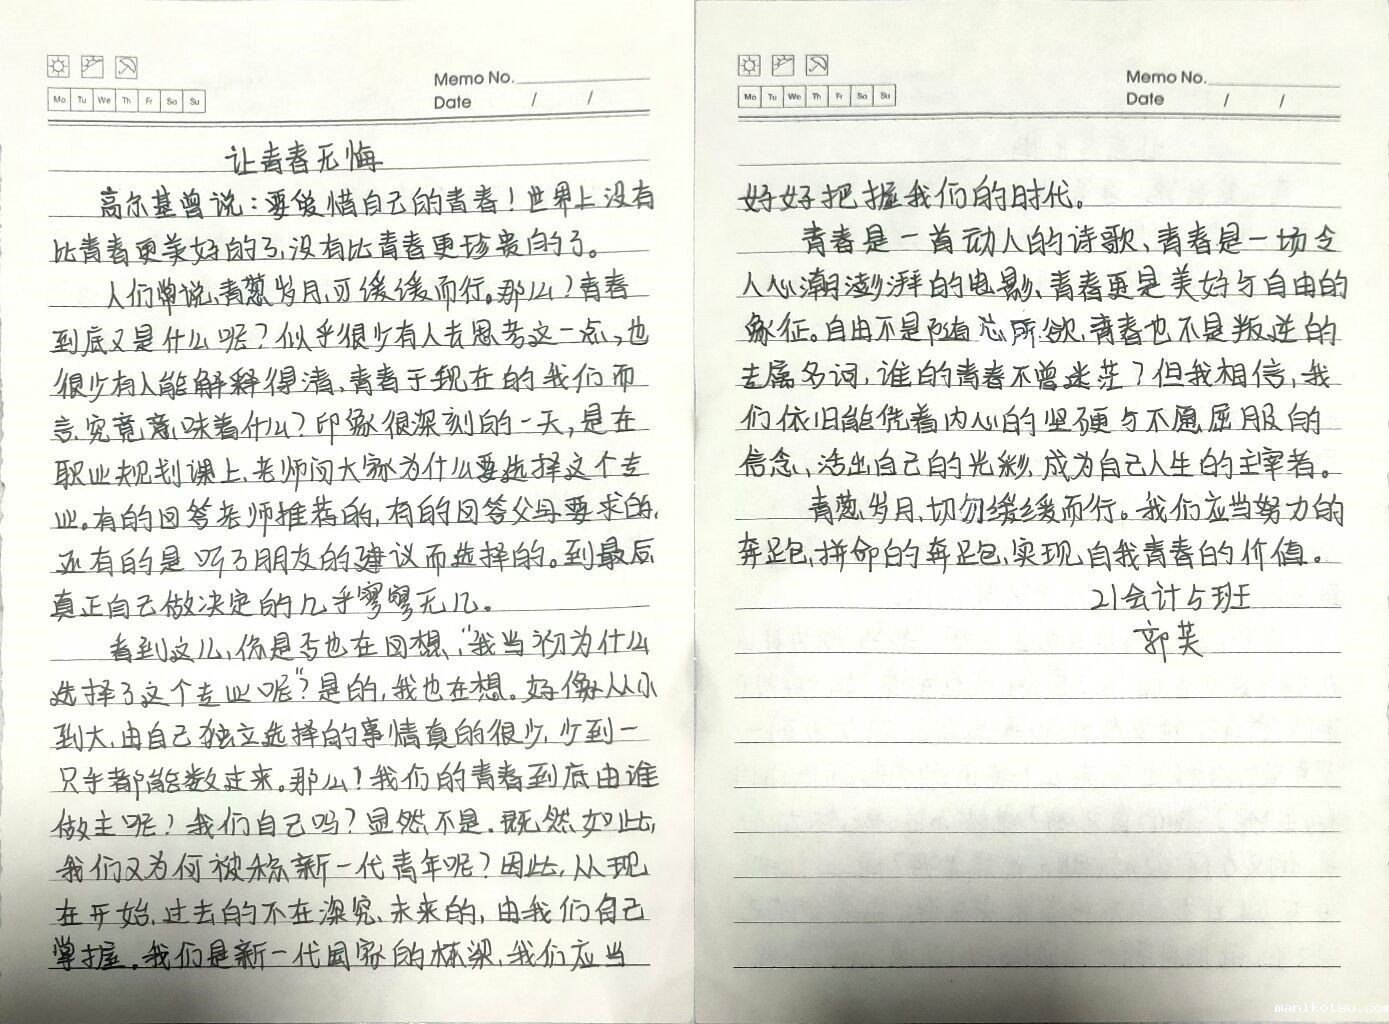 Memo No.
Mo Tu We Th Fr Sa Su
Date / /
让青春无悔
高尔基曾说:要爱惜自己的青春!世界上没有
比青春更美好的了,没有比青春更珍贵的了。
人们常说,青葱岁月,可缓缓而行。那么?青春
到底又是什么呢?似乎很少有人去思考这一点,也
很少有人能解释得清、青春于现在的我们而
言,究竟意味着什么?印象很深刻的一天,是在
职业规划课上,老师问大家为什么要选择这个专
业。有的回答老师推荐的,有的回答父母要求的,
还有的是听了朋友的建议而选择的。到最后
真正自己做决定的几乎寥寥无几。
看到这儿,你是否也在回想,“我当初为什么
选择了这个专业呢”?是的,我也在想。好像从小
到大,由自己独立选择的事情真的很少,少到一
只手都能数过来。那么!我们的青春到底由谁
做主呢?我们自己吗?显然不是。既然如此,
我们又为何被称新一代青年呢?因此,从现
在开始,过去的不在深究,未来的,由我们自己
掌握。我们是新一代国家的栋梁,我们应当
Memo No.
Mo Tu We Th Fr Sa Su
Date / /
好好把握我们的时代。
青春是一首动人的诗歌、青春是一场令
人心潮澎湃的电影、青春更是美好与自由的
象征。自由不是随心所欲,青春也不是叛逆的
专属名词,谁的青春不曾迷茫?但我相信,我
们依旧能凭着内心的坚硬与不愿屈服的
信念,活出自己的光彩,成为自己人生的主宰者。
青葱岁月,切勿缓缓而行。我们应当努力的
奔跑,拼命的奔跑,实现自我青春的价值。
21会计5班
郭芙
manikotsu.com